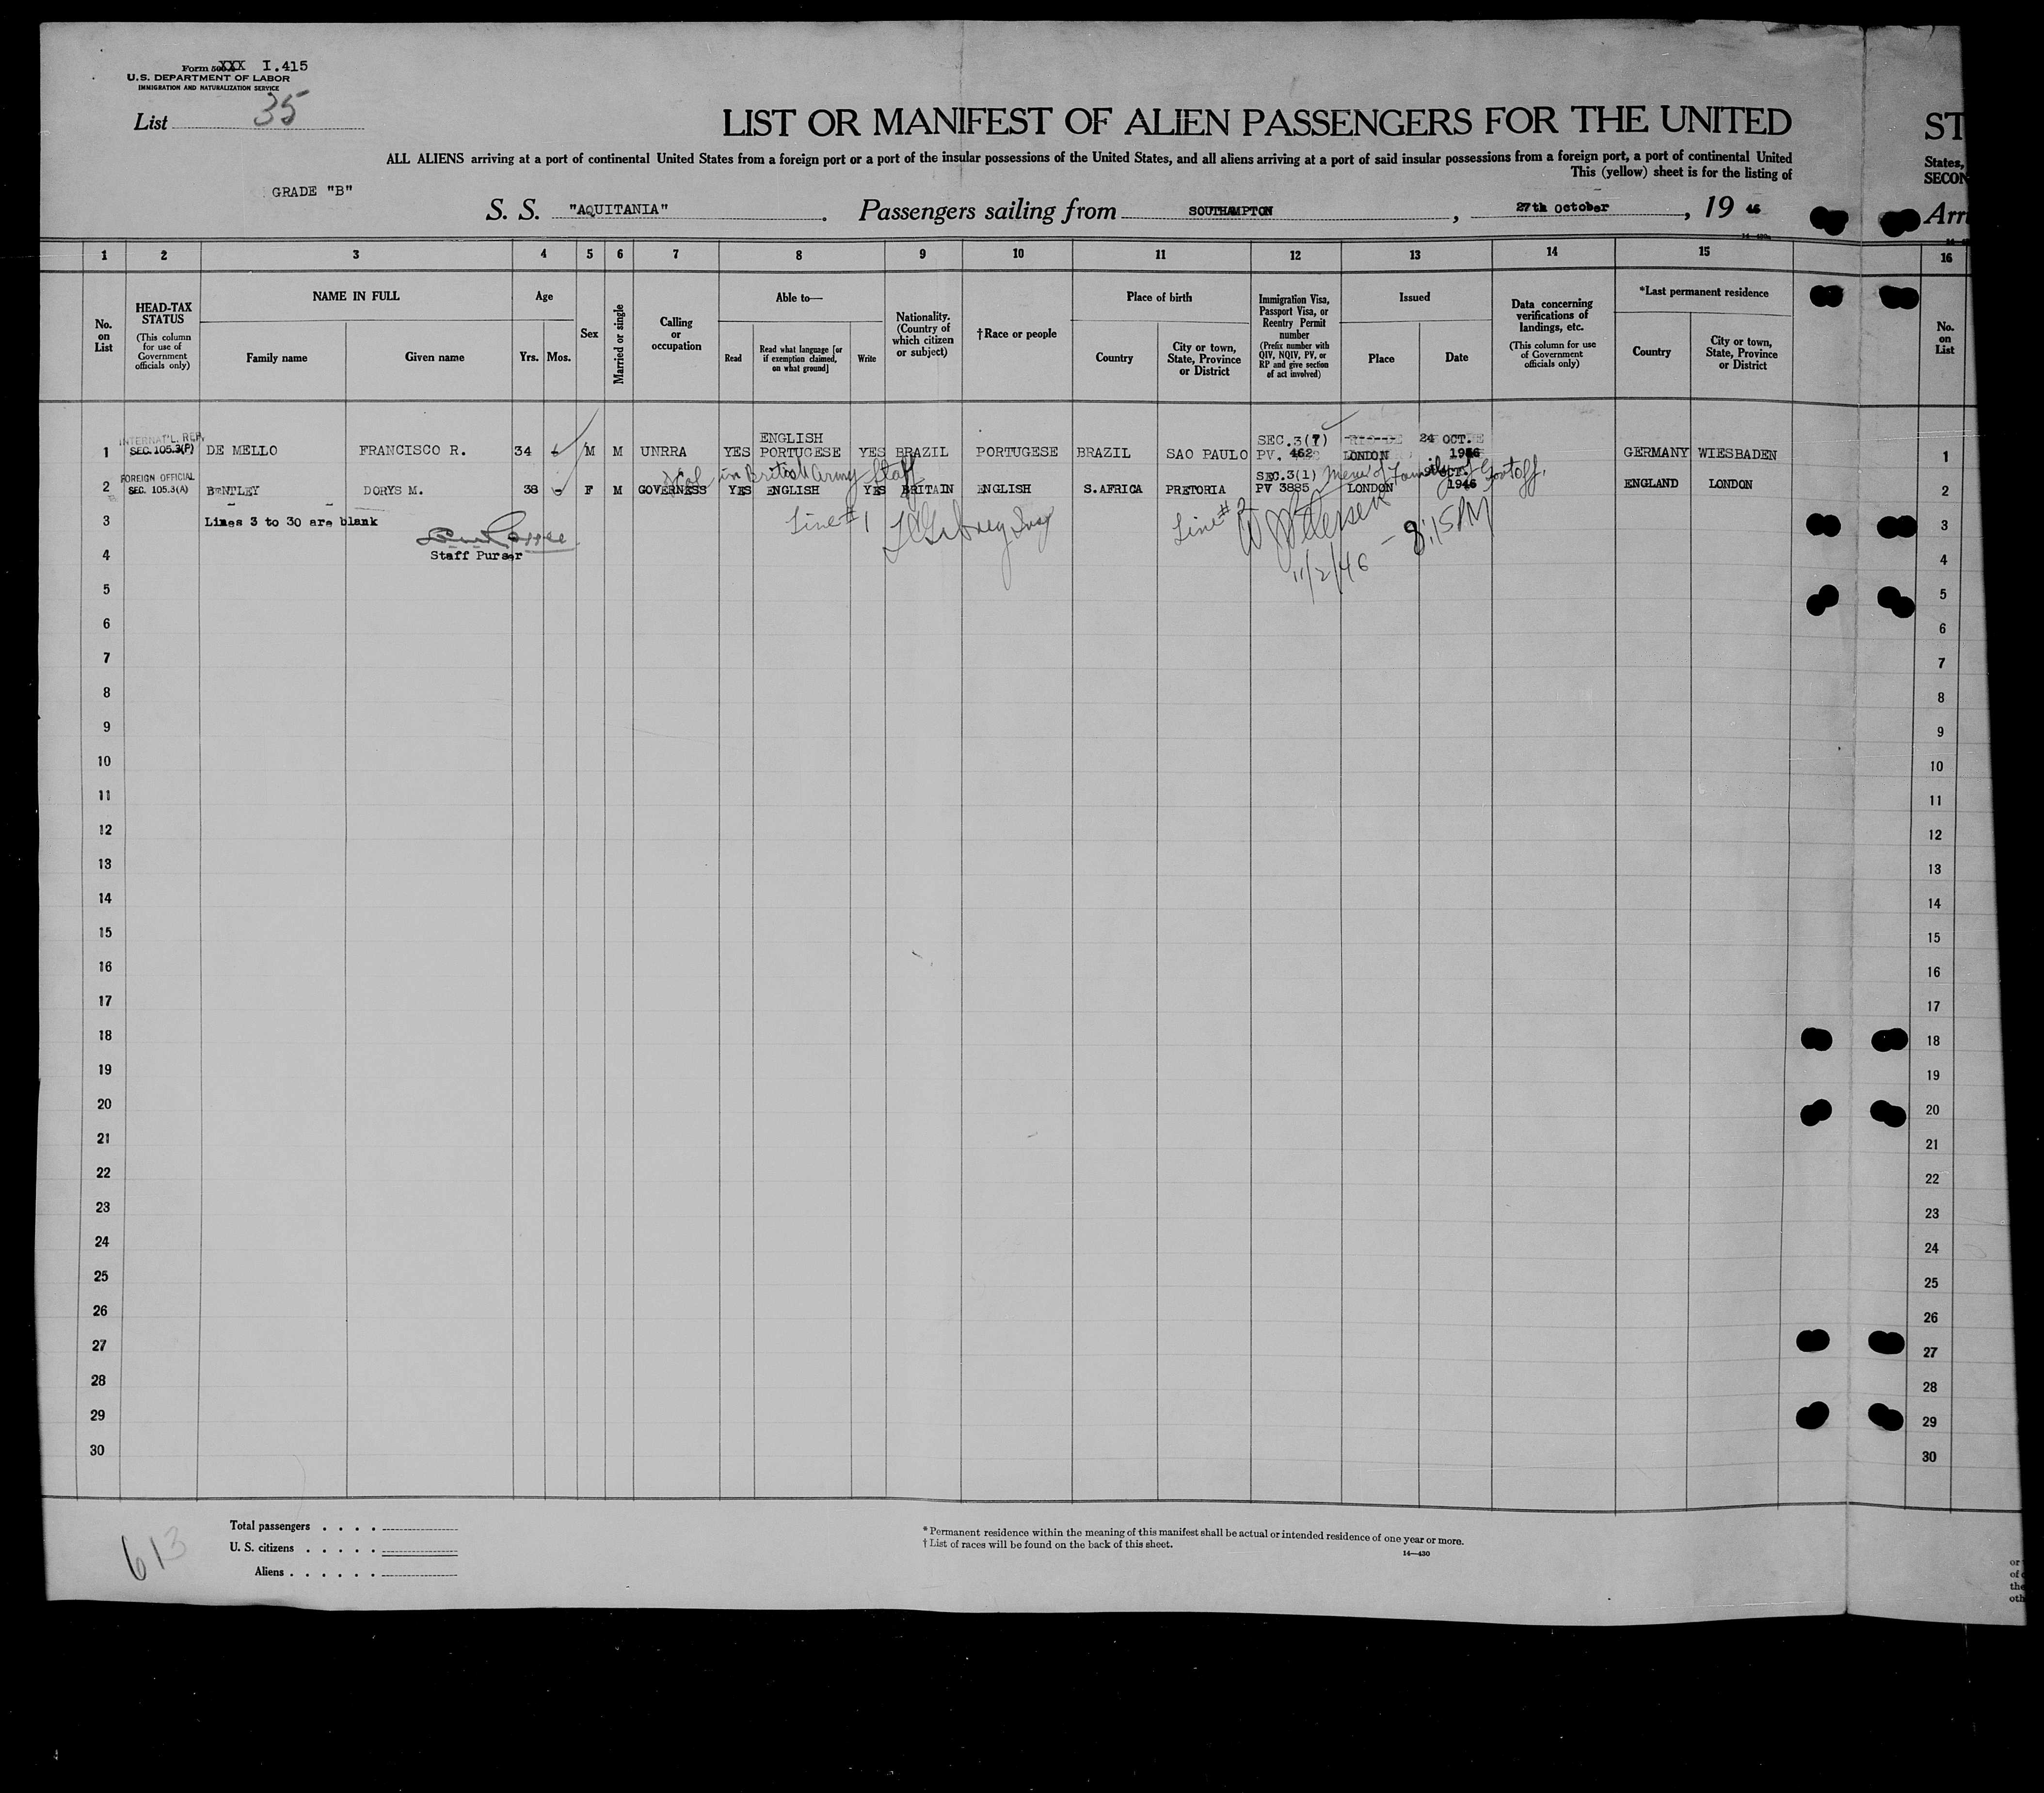 Form 500 XXX I.415
U.S. DEPARTMENT OF LABOR
IMMIGRATION AND NATURALIZATION SERVICE
List 35
LIST OR MANIFEST OF ALIEN PASSENGERS FOR THE UNITED
ST
ALL ALIENS arriving at a port of continental United States from a foreign port or a port of the insular possessions of the United States, and all aliens arriving at a port of said insular possessions from a foreign port, a port of continental United
States,
This (yellow) sheet is for the listing of
SECON
GRADE "B"
S. S. "AQUITANIA". Passengers sailing from SOUTHAMPTON, 27th October, 19 46
Arri
1 2 3 4 5 6 7 8 9 10 11 12 13 14 15 16
No. on List
HEAD-TAX STATUS
(This column for use of Government officials only)
NAME IN FULL
Family name Given name
Age
Yrs. Mos.
Sex
Married or single
Calling or occupation
Able to—
Read
Read what language [or if exemption claimed, on what ground]
Write
Nationality. (Country of which citizen or subject)
†Race or people
Place of birth
Country
City or town, State, Province or District
Immigration Visa, Passport Visa, or Reentry Permit number
(Prefix number with QIV, NQIV, PV, or RP and give section of act involved)
Issued
Place Date
Data concerning verifications of landings, etc.
(This column for use of Government officials only)
*Last permanent residence
Country
City or town, State, Province or District
No. on List
INTERNAT'L. REP.
ENGLISH SEC.3(7) 24 OCT.
1 SEC. 105.3(F) DE MELLO FRANCISCO R. 34 M M UNRRA YES PORTUGESE YES BRAZIL PORTUGESE BRAZIL SAO PAULO PV. 462 LONDON 1946 GERMANY WIESBADEN 1
FOREIGN OFFICIAL in British Army Staff SEC.3(1) Mem of Family of Govt off.
2 SEC. 105.3(A) BENTLEY DORYS M. 38 F M GOVERNESS YES ENGLISH YES BRITAIN ENGLISH S.AFRICA PRETORIA PV 3885 LONDON 1946 ENGLAND LONDON 2
3 Lines 3 to 30 are blank Line #1 Line # 2 3
4 Staff Purser 11/2/46 - 8:15 PM 4
5 5
6 6
7 7
8 8
9 9
10 10
11 11
12 12
13 13
14 14
15 15
16 16
17 17
18 18
19 19
20 20
21 21
22 22
23 23
24 24
25 25
26 26
27 27
28 28
29 29
30 30
Total passengers . . . .
U. S. citizens . . . . .
Aliens . . . . . .
613
*Permanent residence within the meaning of this manifest shall be actual or intended residence of one year or more.
†List of races will be found on the back of this sheet.
14—430
or
of
the
oth